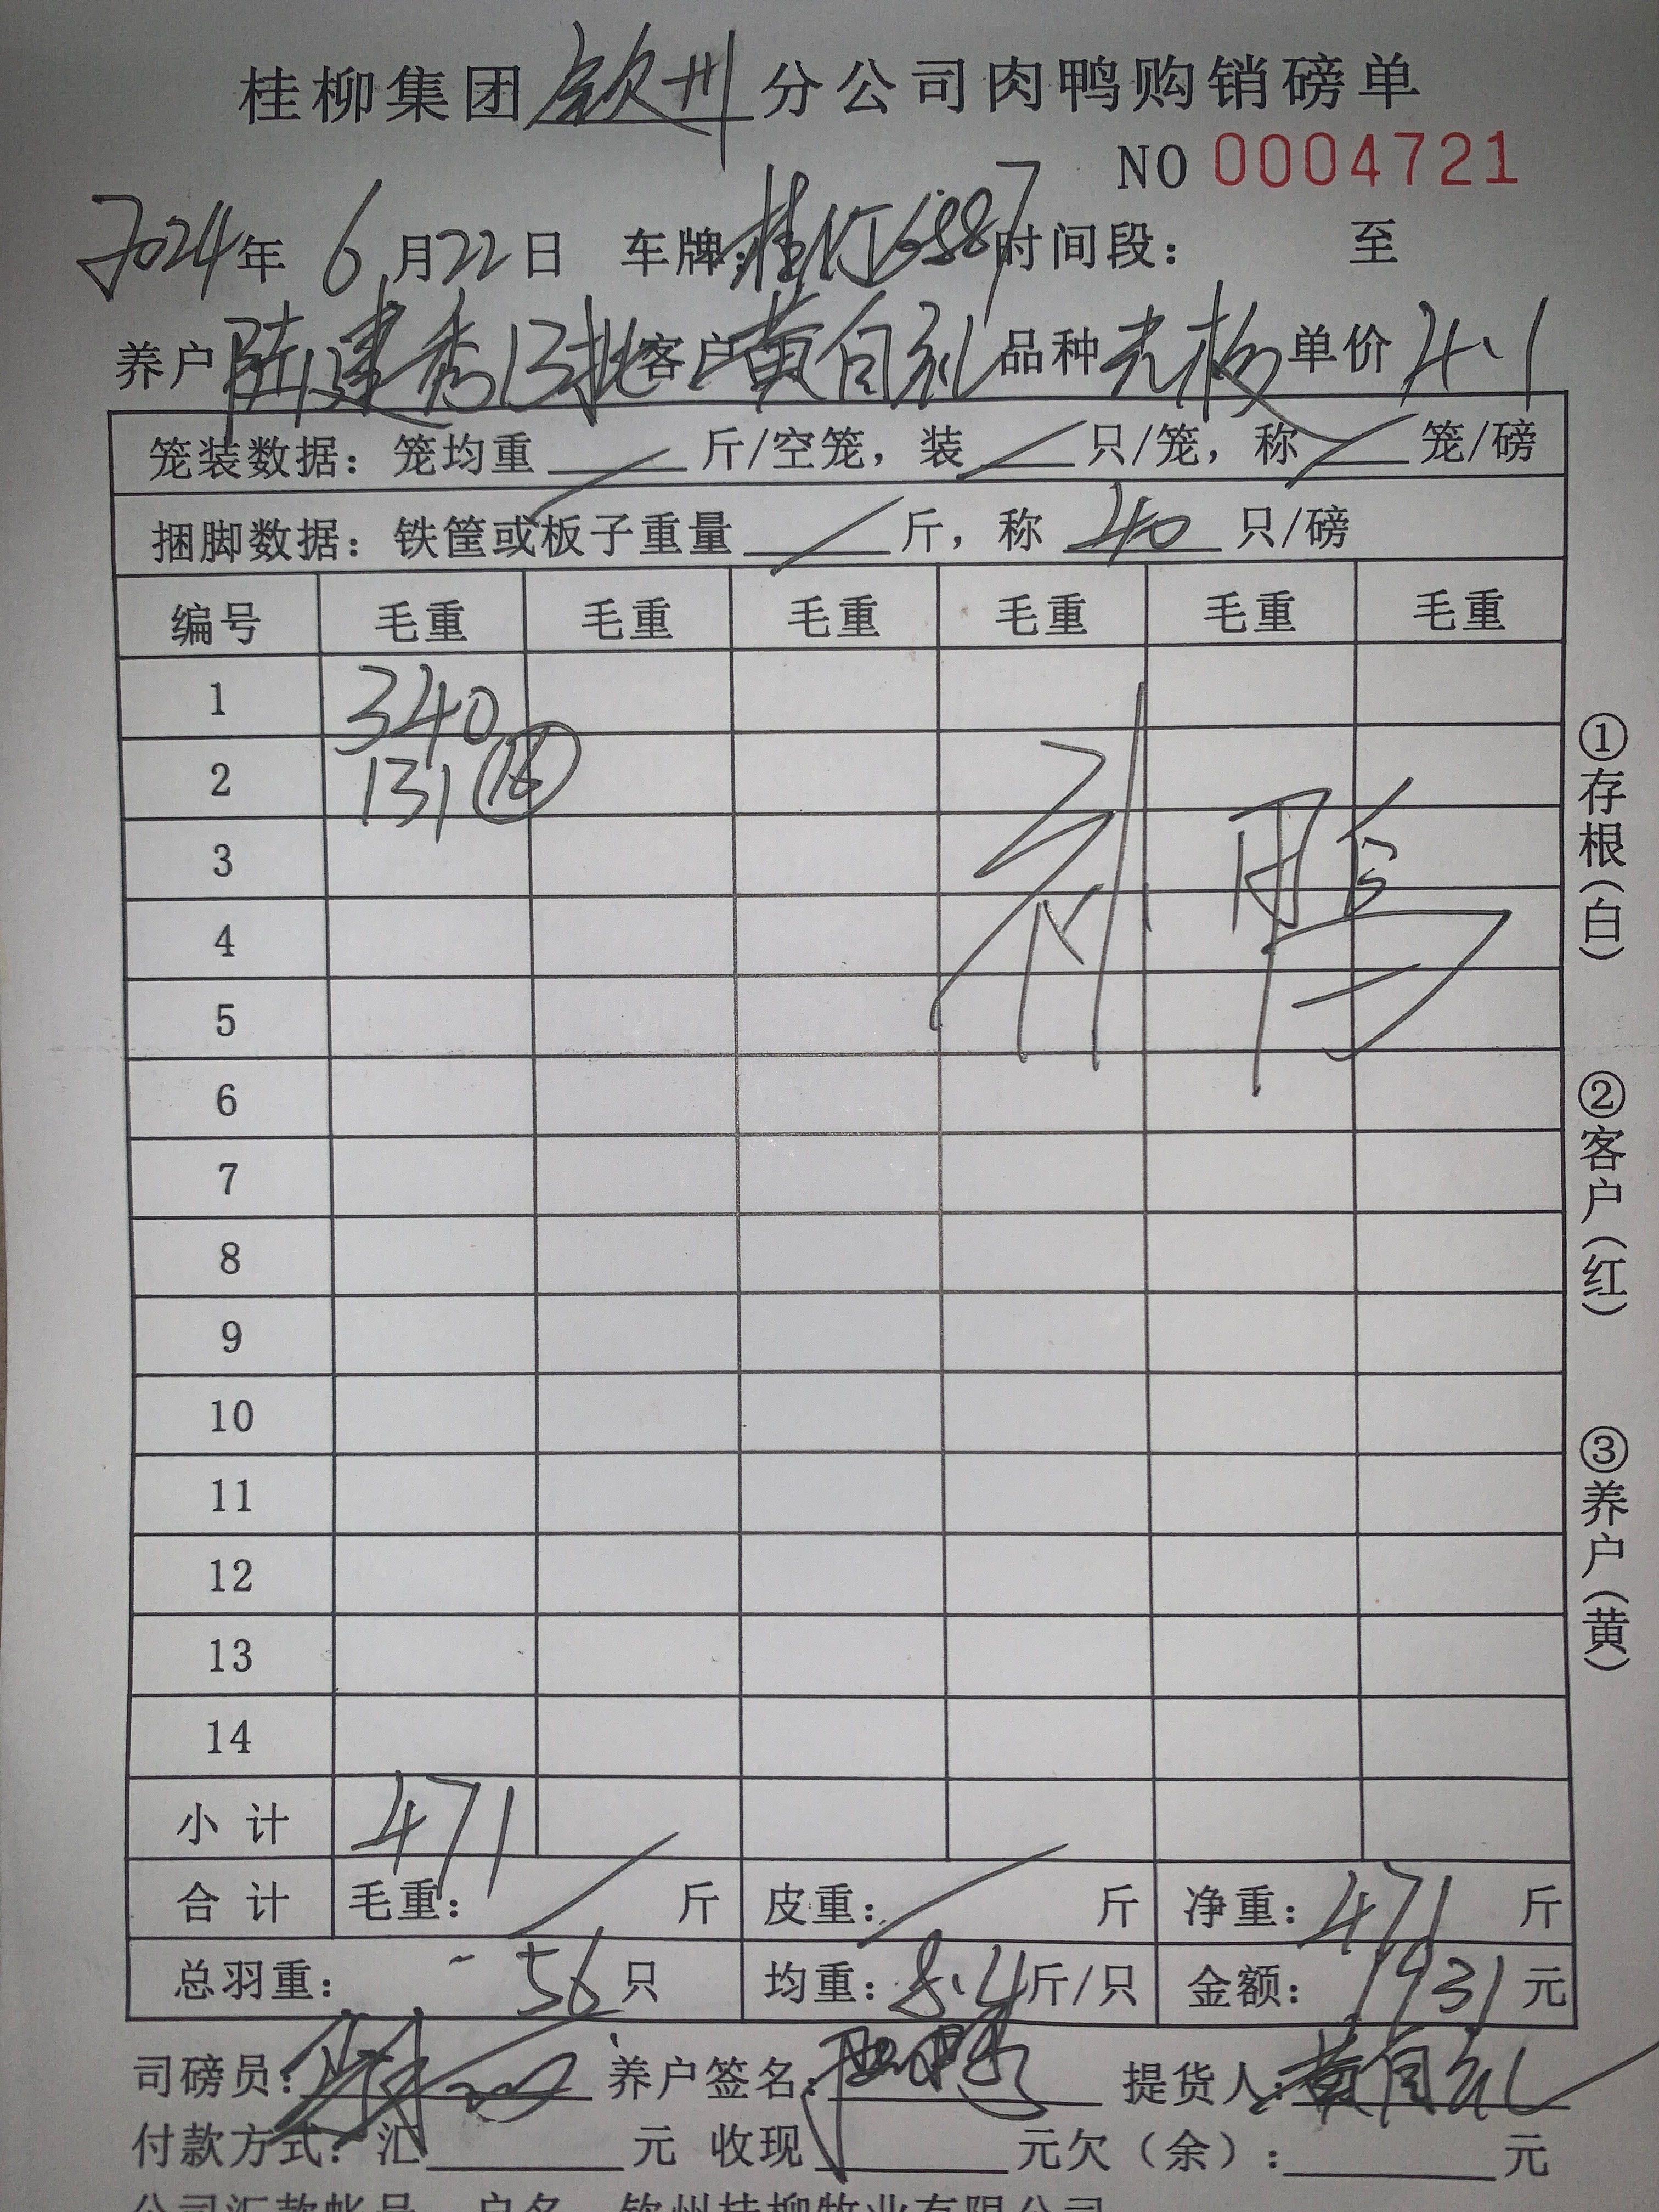 桂柳集团钦州分公司肉鸭购销磅单
NO 0004721
2024年 6月22日 车牌: 时间段: 至
养户陆建秀13批客户黄自礼品种单价4.1
笼装数据: 笼均重 斤/空笼, 装 只/笼, 称 笼/磅
捆脚数据: 铁筐或板子重量 斤, 称 40 只/磅
编号 毛重 毛重 毛重 毛重 毛重 毛重
1 340
2 131 16
3
4
5
6
7
8
9
10
11
12
13
14
小计 471
合计 毛重: 斤 皮重: 斤 净重: 471 斤
总羽重: 56只 均重: 8.4斤/只 金额: 1931元
①存根(白) ②客户(红) ③养户(黄)
司磅员: 养户签名: 提货人:黄自礼
付款方式: 汇 元 收现 元欠(余): 元
公司汇款帐号 户名 钦州桂柳牧业有限公司